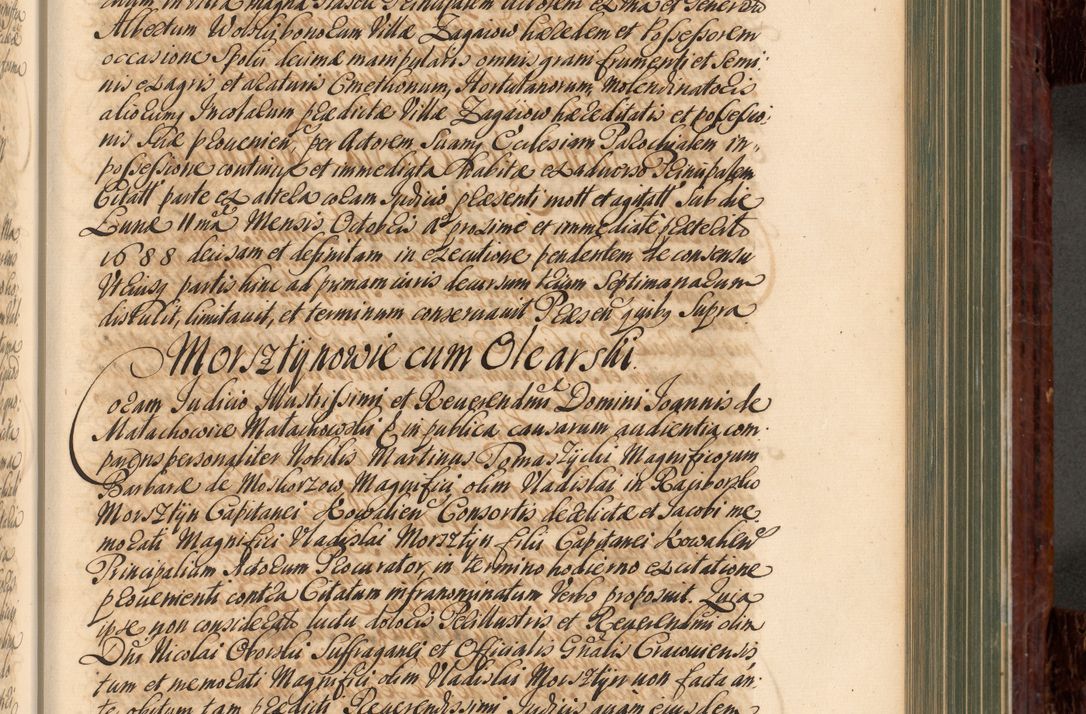 Albertum Wolski bonorum Villæ Zagaiow hæredem et Possessorem
occasione Spolii decimæ manipularis omnis grani frumenti et Semi
nis ex agris et areaturis Cmethonum, Hortulanorum, Molendinatoris
aliorumq Incolarum prædictæ Villæ Zagaiow hæreditatis et possessio
nis suæ provenien, per Actorem, Suamq Ecclesiam Parochialem in
possessione continua et immediata habitæ ex adverso Principalem
Citatt parte ex altera coram Judicio præsenti mott et agitatt sub die
Lunæ 11 ma Mensis Octobris Aº proxime et immediate præterito
1688 decisam et definitam in executione pendentem de consensu
Utriusq partis hinc ad primam iuris decursum trium Septimanarum
distulit, limitavit, et terminum conservavit Præsen quibq Supra
Morsztynowie cum Olearski.
Coram Judicio Illustrissimi et Reverendmi Domini Joannis de
Małachowice Małachowski E in publica causarum audientia com
parens personaliter Nobilis Martinus Tomaszycki Magnificorum
Barbaræ de Moskorzow Magnifici olim Vladislai in Raciborsko
Morsztyn Capitanei Kowalien Consortis derelictæ et Jacobi me
morati Magnifici Vladislai Morsztyn filii Capitanei Kowalien
Principalium Actorum Procurator, in termino hodierno ex citatione
provenienti contra Citatum infranominatum Verbo proposuit. Quia
ipse non considerato luctu doloris Perillustris et Reverendmi olim
Dni Nicolai Oborski Suffraganei et Officialis Gnalis Cracoviensis
tum et memorati Magnifici olim Vladislai Morsztyn non facta an
te obitum tam prædicti Reverendissimi Judicis quam eiusdem